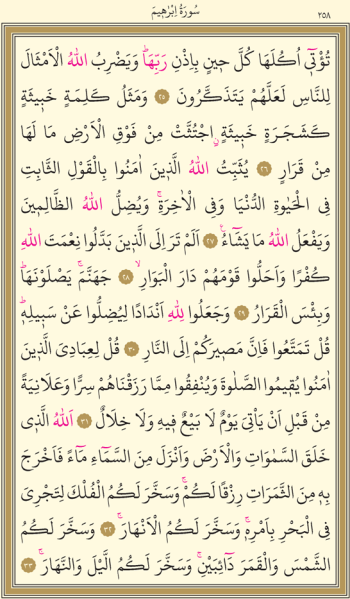 سُورَةُ اِبْرٰه۪يمَ ٢٥٨
تُؤْت۪ٓي اُكُلَهَا كُلَّ ح۪ينٍ بِاِذْنِ رَبِّهَاۜ وَيَضْرِبُ اللّٰهُ الْاَمْثَالَ
لِلنَّاسِ لَعَلَّهُمْ يَتَذَكَّرُونَ ٢٥ وَمَثَلُ كَلِمَةٍ خَب۪يثَةٍ
كَشَجَرَةٍ خَب۪يثَةٍۨ اجْتُثَّتْ مِنْ فَوْقِ الْاَرْضِ مَا لَهَا
مِنْ قَرَارٍ ٢٦ يُثَبِّتُ اللّٰهُ الَّذ۪ينَ اٰمَنُوا بِالْقَوْلِ الثَّابِتِ
فِي الْحَيٰوةِ الدُّنْيَا وَفِي الْاٰخِرَةِۚ وَيُضِلُّ اللّٰهُ الظَّالِم۪ينَ
وَيَفْعَلُ اللّٰهُ مَا يَشَٓاءُ۟ ٢٧ اَلَمْ تَرَ اِلَى الَّذ۪ينَ بَدَّلُوا نِعْمَتَ اللّٰهِ
كُفْرًا وَاَحَلُّوا قَوْمَهُمْ دَارَ الْبَوَارِۙ ٢٨ جَهَنَّمَۚ يَصْلَوْنَهَاۜ
وَبِئْسَ الْقَرَارُ ٢٩ وَجَعَلُوا لِلّٰهِ اَنْدَادًا لِيُضِلُّوا عَنْ سَب۪يلِه۪ۜ
قُلْ تَمَتَّعُوا فَاِنَّ مَص۪يرَكُمْ اِلَى النَّارِ ٣٠ قُلْ لِعِبَادِيَ الَّذ۪ينَ
اٰمَنُوا يُق۪يمُوا الصَّلٰوةَ وَيُنْفِقُوا مِمَّا رَزَقْنَاهُمْ سِرًّا وَعَلَانِيَةً
مِنْ قَبْلِ اَنْ يَأْتِيَ يَوْمٌ لَا بَيْعٌ ف۪يهِ وَلَا خِلَالٌ ٣١ اَللّٰهُ الَّذ۪ي
خَلَقَ السَّمٰوَاتِ وَالْاَرْضَ وَاَنْزَلَ مِنَ السَّمَٓاءِ مَٓاءً فَاَخْرَجَ
بِه۪ مِنَ الثَّمَرَاتِ رِزْقًا لَكُمْۚ وَسَخَّرَ لَكُمُ الْفُلْكَ لِتَجْرِيَ
فِي الْبَحْرِ بِاَمْرِه۪ۚ وَسَخَّرَ لَكُمُ الْاَنْهَارَۚ ٣٢ وَسَخَّرَ لَكُمُ
الشَّمْسَ وَالْقَمَرَ دَٓائِبَيْنِۚ وَسَخَّرَ لَكُمُ الَّيْلَ وَالنَّهَارَۚ ٣٣